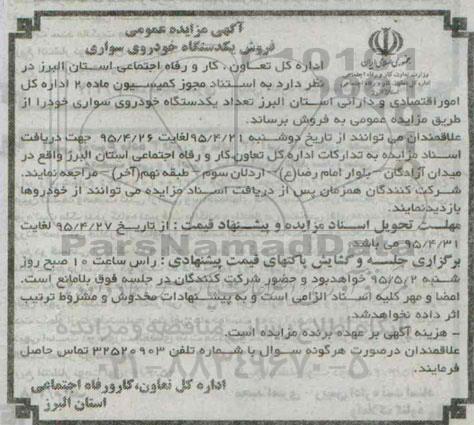 آگهی مزایده عمومی
فروش یکدستگاه خودروی سواری
جمهوری اسلامی ایران
وزارت تعاون، کار و رفاه اجتماعی
اداره کل تعاون، کار و رفاه اجتماعی استان البرز در
نظر دارد به استناد مجوز کمیسیون ماده ۲ اداره کل
اموراقتصادی و دارائی استان البرز تعداد یکدستگاه خودروی سواری خودرا از
طریق مزایده عمومی به فروش برساند.
علاقمندان می توانند از تاریخ دوشنبه ۹۵/۴/۲۱لغایت ۹۵/۴/۲۶ جهت دریافت
اسناد مزایده به تدارکات اداره کل تعاون،کار و رفاه اجتماعی استان البرز واقع در
میدان آزادگان - بلوار امام رضا(ع) - اردلان سوم - طبقه نهم(آخر) مراجعه نمایند.
شرکت کنندگان همزمان پس از دریافت اسناد مزایده می توانند از خودروها
بازدیدنمایند.
مهلت تحویل اسناد مزایده و پیشنهاد قیمت : از تاریخ ۹۵/۴/۲۷ لغایت
۹۵/۴/۳۱ می باشد
برگزاری جلسه و گشایش پاکتهای قیمت پیشنهادی : راس ساعت ۱۰ صبح روز
شنبه ۹۵/۵/۲ خواهدبود و حضور شرکت کنندگان در جلسه فوق بلامانع است.
امضا و مهر کلیه اسناد الزامی است و به پیشنهادات مخدوش و مشروط ترتیب
اثر داده نخواهدشد.
- هزینه آگهی بر عهده برنده مزایده است.
علاقمندان درصورت هرگونه سوال با شماره تلفن ۳۲۵۲۰۹۰۳ تماس حاصل
فرمایند.
اداره کل تعاون،کارورفاه اجتماعی
استان البرز
ParsNamadData